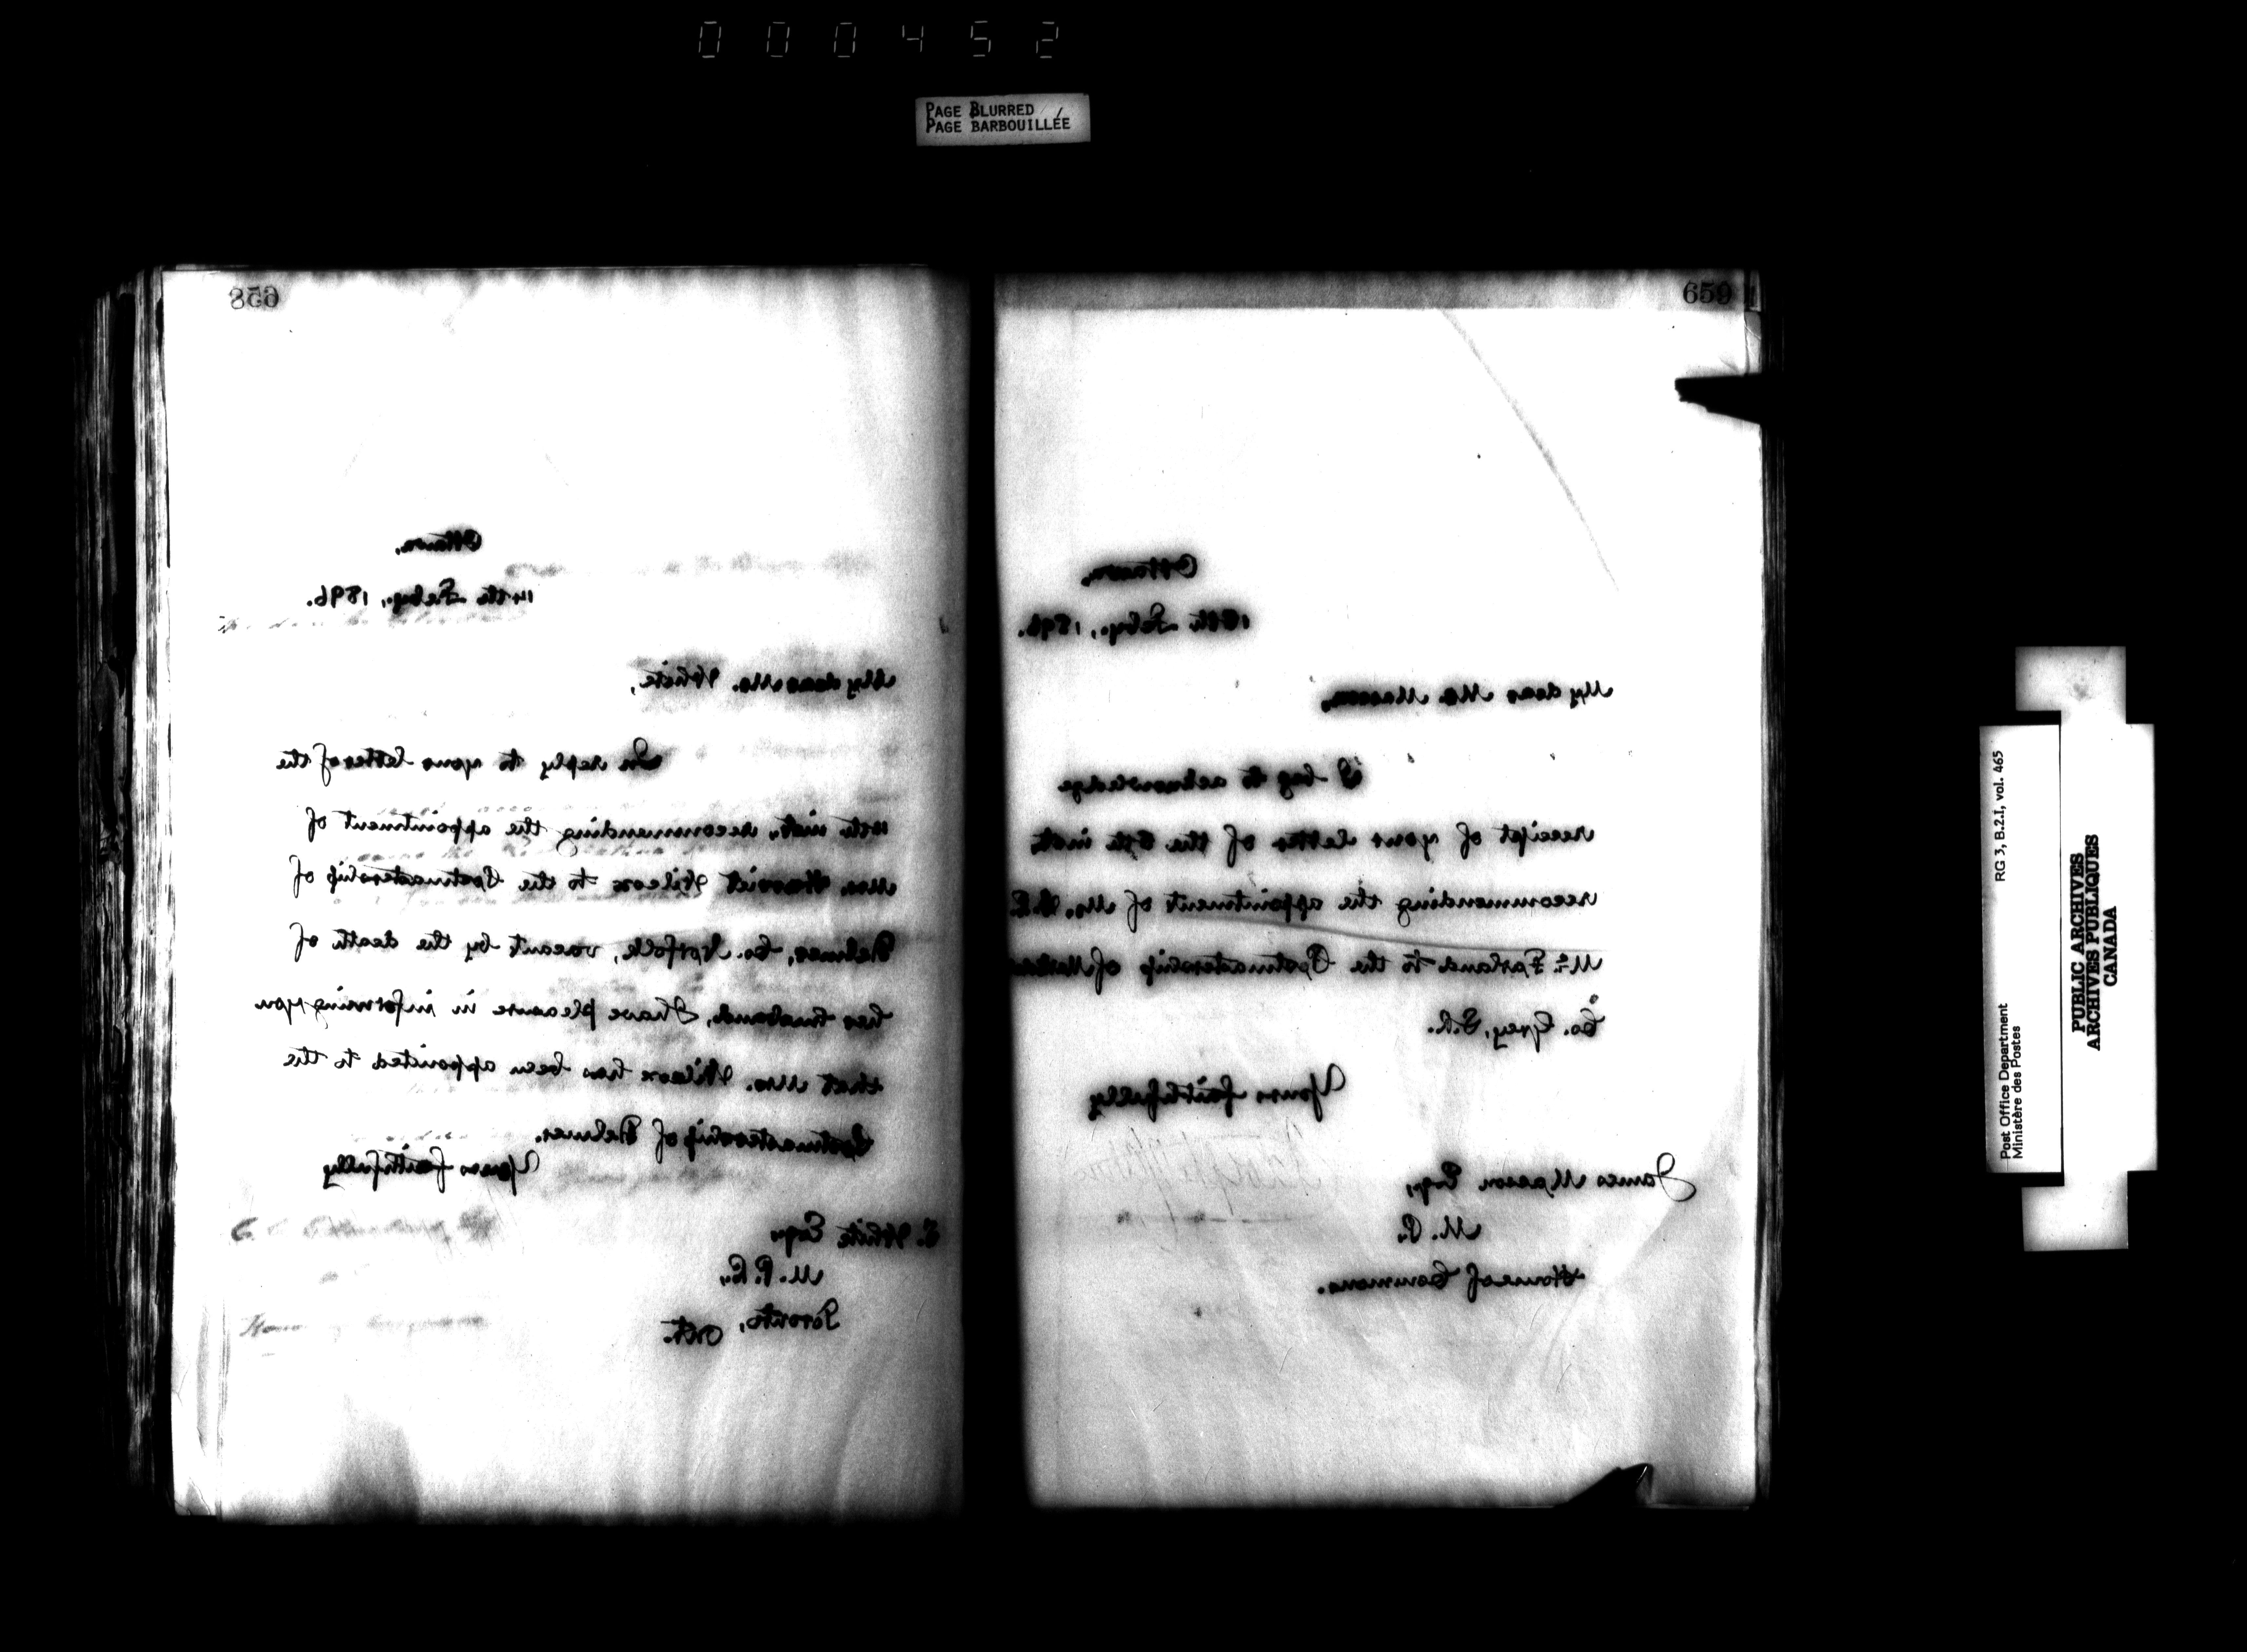 000452
PAGE BLURRED
PAGE BARBOUILLÉE
658
Ottawa,
14th Feby., 1896.
My dear Mr. White,
In reply to your letter of the
inst., recommending the appointment of
Mrs. Harriet Wilcox to the Postmastership of
Helmer, Co. Norfolk, vacant by the death of
her husband, I have pleasure in informing you
that Mrs. Wilcox has been appointed to the
Postmastership of Helmer.
Yours faithfully
White Esq.,
M.P.P.,
Toronto, Ont.
659
Ottawa,
Feby., 1896.
My dear Mr. Masson,
I beg to acknowledge
receipt of your letter of the inst.
recommending the appointment of Mr.
McFarland to the Postmastership of
Co. Grey, E.R.
Yours faithfully
James Masson Esq.,
M.P.
House of Commons.
Post Office Department
Ministère des Postes
RG 3, B.2.I, vol. 465
PUBLIC ARCHIVES
ARCHIVES PUBLIQUES
CANADA